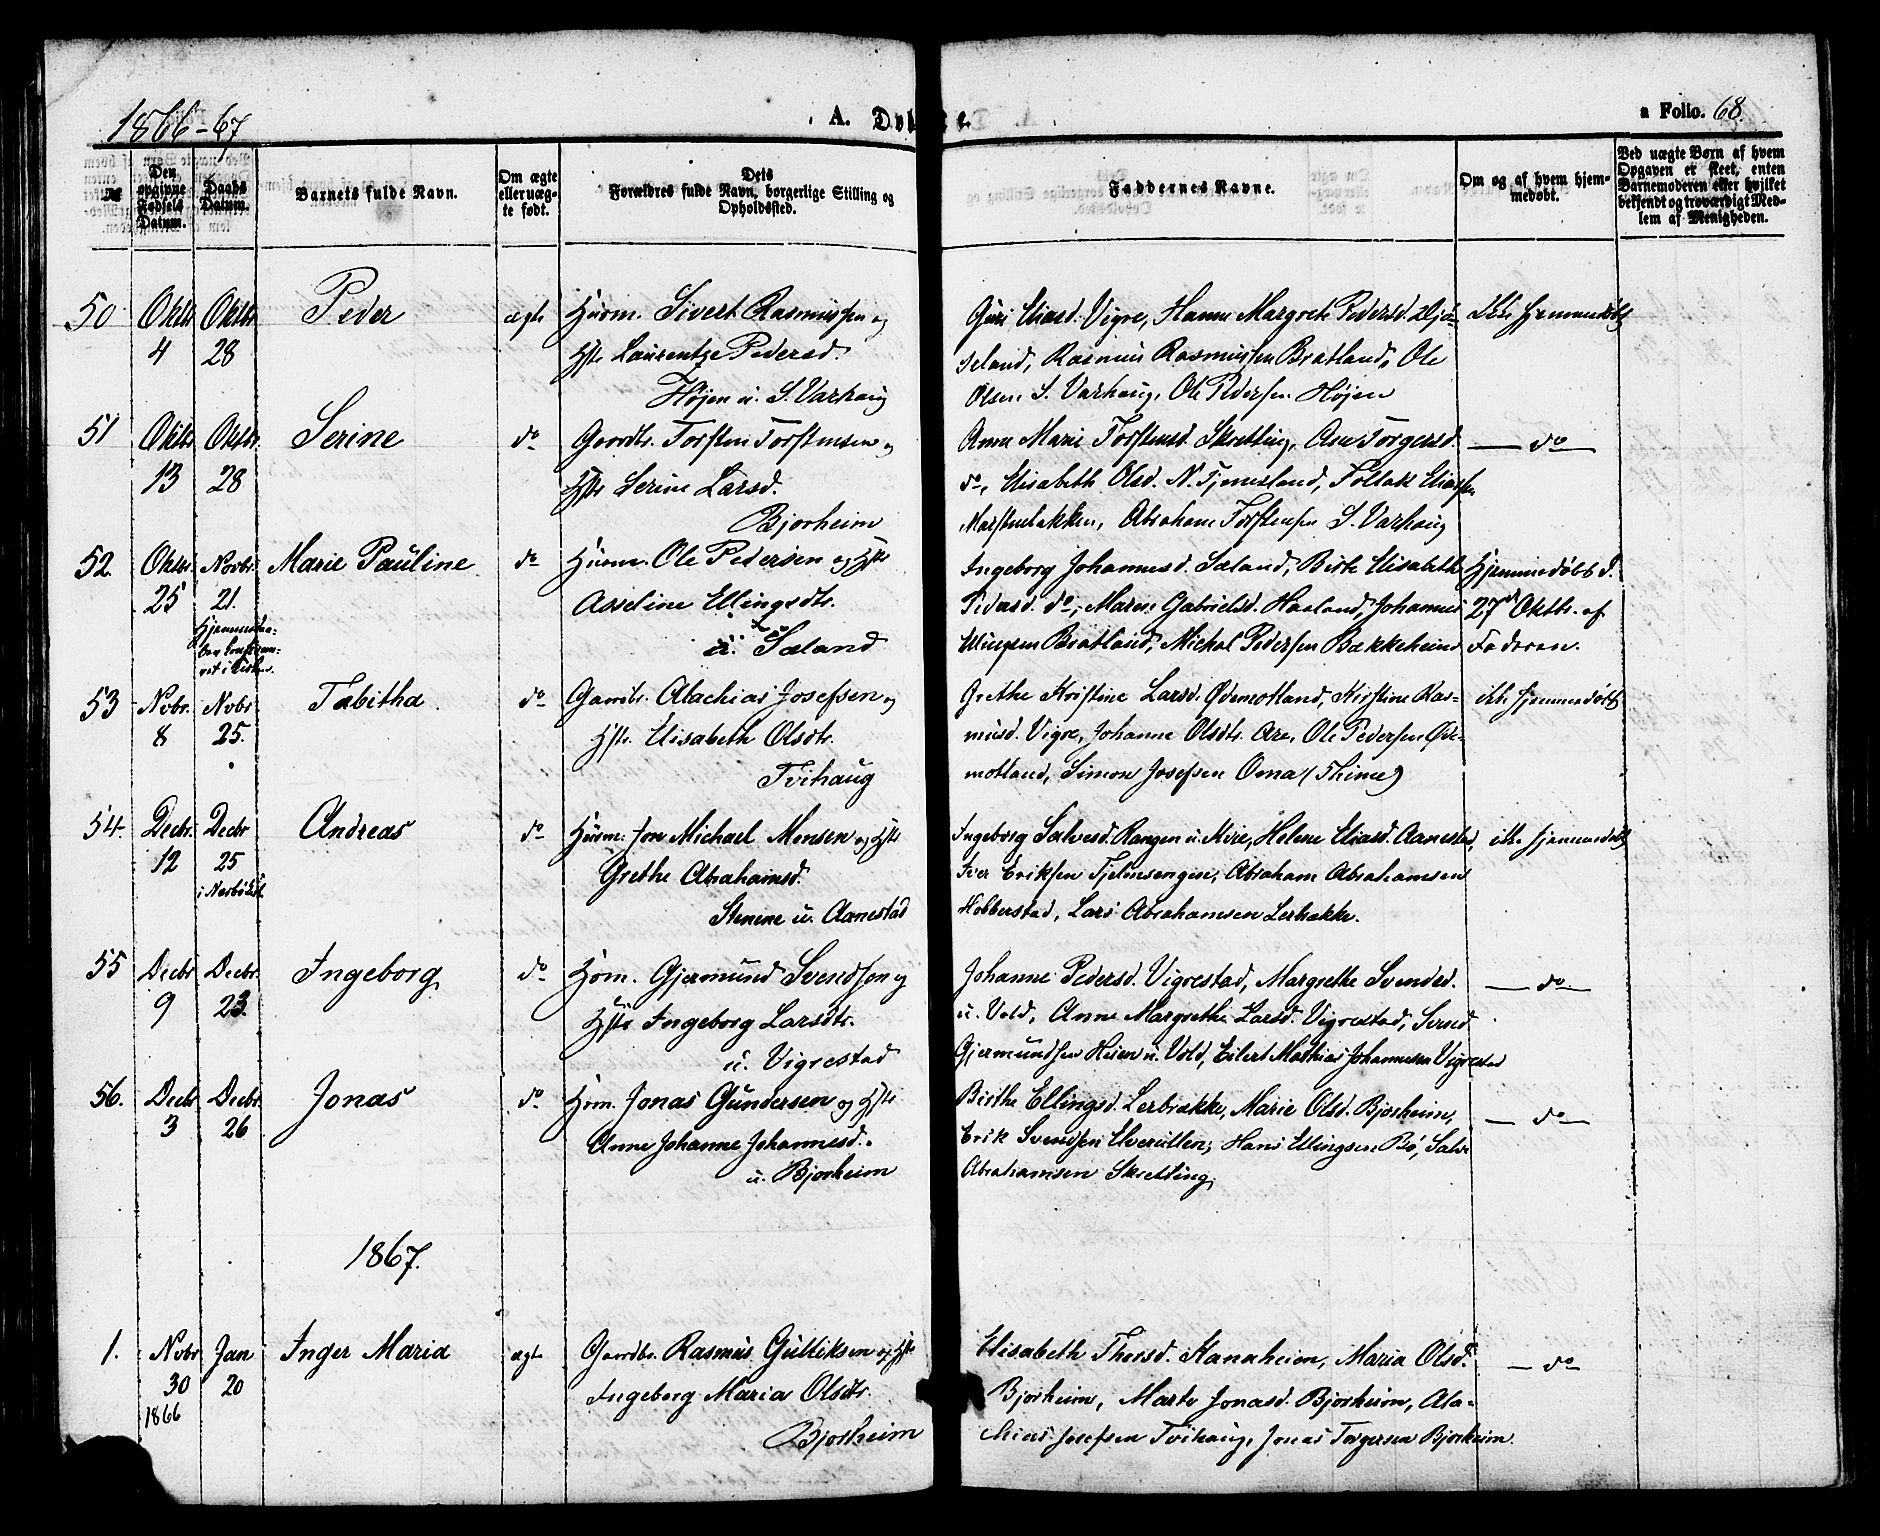 1866-67
A. Døbte.
a Folio. 68.
№
Den opgivne Fødsels Datum.
Daabs Datum.
Barnets fulde Navn.
Om ægte eller uægte født.
Dets Forældres fulde Navn, borgerlige Stilling og Opholdssted.
Faddernes Navne.
Om og af hvem hjemmedøbt.
Ved uægte Børn af hvem Opgaven er skeet, enten Barnemoderen eller hvilket bekjendt og troværdigt Medlem af Menigheden.
50 Oktbr 4 Oktbr 28 Peder ægte
Huusm. Sivert Rasmussen og
Hstr Laurentze Pedersd.
Højen u. S. Varhaug
Guri Eliasd. Vigre, Hanne Margrete Pedersd.
Rasmus Rasmussen Bratland, Ole
Olsen S. Varhaug, Ole Pedersen Højen
ikke hjemmedøbt
51 Oktbr 13 Oktbr. 28 Serine do
Gaardbr. Torsten Torstensen og
Hstr Serine Larsd.
Bjorheim
Anne Marie Torstensd. Skretting, Ane Torgersd.
do, Elisabeth Olsd. N. Tjemsland, Tollak Eliassen
Abraham Torstensen S. Varhaug
do
52. Oktbr. 25 Novbr. 21. Marie Pauline do
Hjemmedaaben
i Kirken
Huusm. Ole Pedersen og Hstr
Asseline Ellingsdtr.
u. Sæland
Ingeborg Johannesd. Sæland, Birte Elisabeth
Pedersd. do, Maren Gabrielsd. Haaland, Johannes
Ellingsen Bratland, Michal Pedersen Bækkeheim
Hjemmedøbt d.
27d Oktbr. af
Faderen.
53 Novbr. 8 Novbr 25. Tabitha do
Gaardbr. Malachias Josefsen og
Hstr. Elisabeth Olsdtr.
Tvihaug
Grethe Kristine Larsd. Ødemotland, Kirstine Ras-
musd. Vigre, Johanne Olsdtr. Are, Ole Pedersen Øde-
motland, Simon Josefsen Oma (Thime)
ikke hjemmedøbt
54. Decbr. 12 Decbr 25 Andreas do
i Nærbø
Huusm. Jon Michael Monsen og Hstr
Grethe Abrahamsd.
Stenene u. Aanestad
Ingeborg Salvesd. Rangen u. Helene Eliasd. Aanestad,
Iver Eriksen Abraham Abrahamsen
Hobberstad, Lars Abrahamsen Lerbrække.
ikke hjemmedøbt
55 Decbr 9 Decbr. 23. Ingeborg do
Hsm. Gjermund Svendsen og
Hstr Ingeborg Larsdtr.
u. Vigrestad
Johanne Pedersd. Vigrestad, Margrethe Svendsd.
u. Vold, Anne Margrethe Larsd. Vigrestad, Svend
Gjermundsen u. Vold, Eilert Mathias Johannesen Vigrestad
do.
56. Decbr 3 Decbr. 26 Jonas do.
Hsm. Jonas Gundersen og Hstr
Anne Johanne Johannesd.
u. Bjorheim
Birthe Ellingsd. Lerbrække, Marie Olsd. Bjorheim,
Erik Svendsen Hans Ellingsen Bø, Salve
Abrahamsen Skretting.
do
1867.
1. Novbr 30 1866 Jan 20 Inger Maria ægte
Gaardbr. Rasmus Gulliksen og Hstr
Ingeborg Maria Olsdtr.
Bjorheim
Elisabeth Thorsd. Kanaheim, Maria Olsd.
Bjorheim, Marte Jonasd. Bjorheim, Mala-
chias Josefsen Tvihaug, Jonas Torgersen Bjorheim.
do